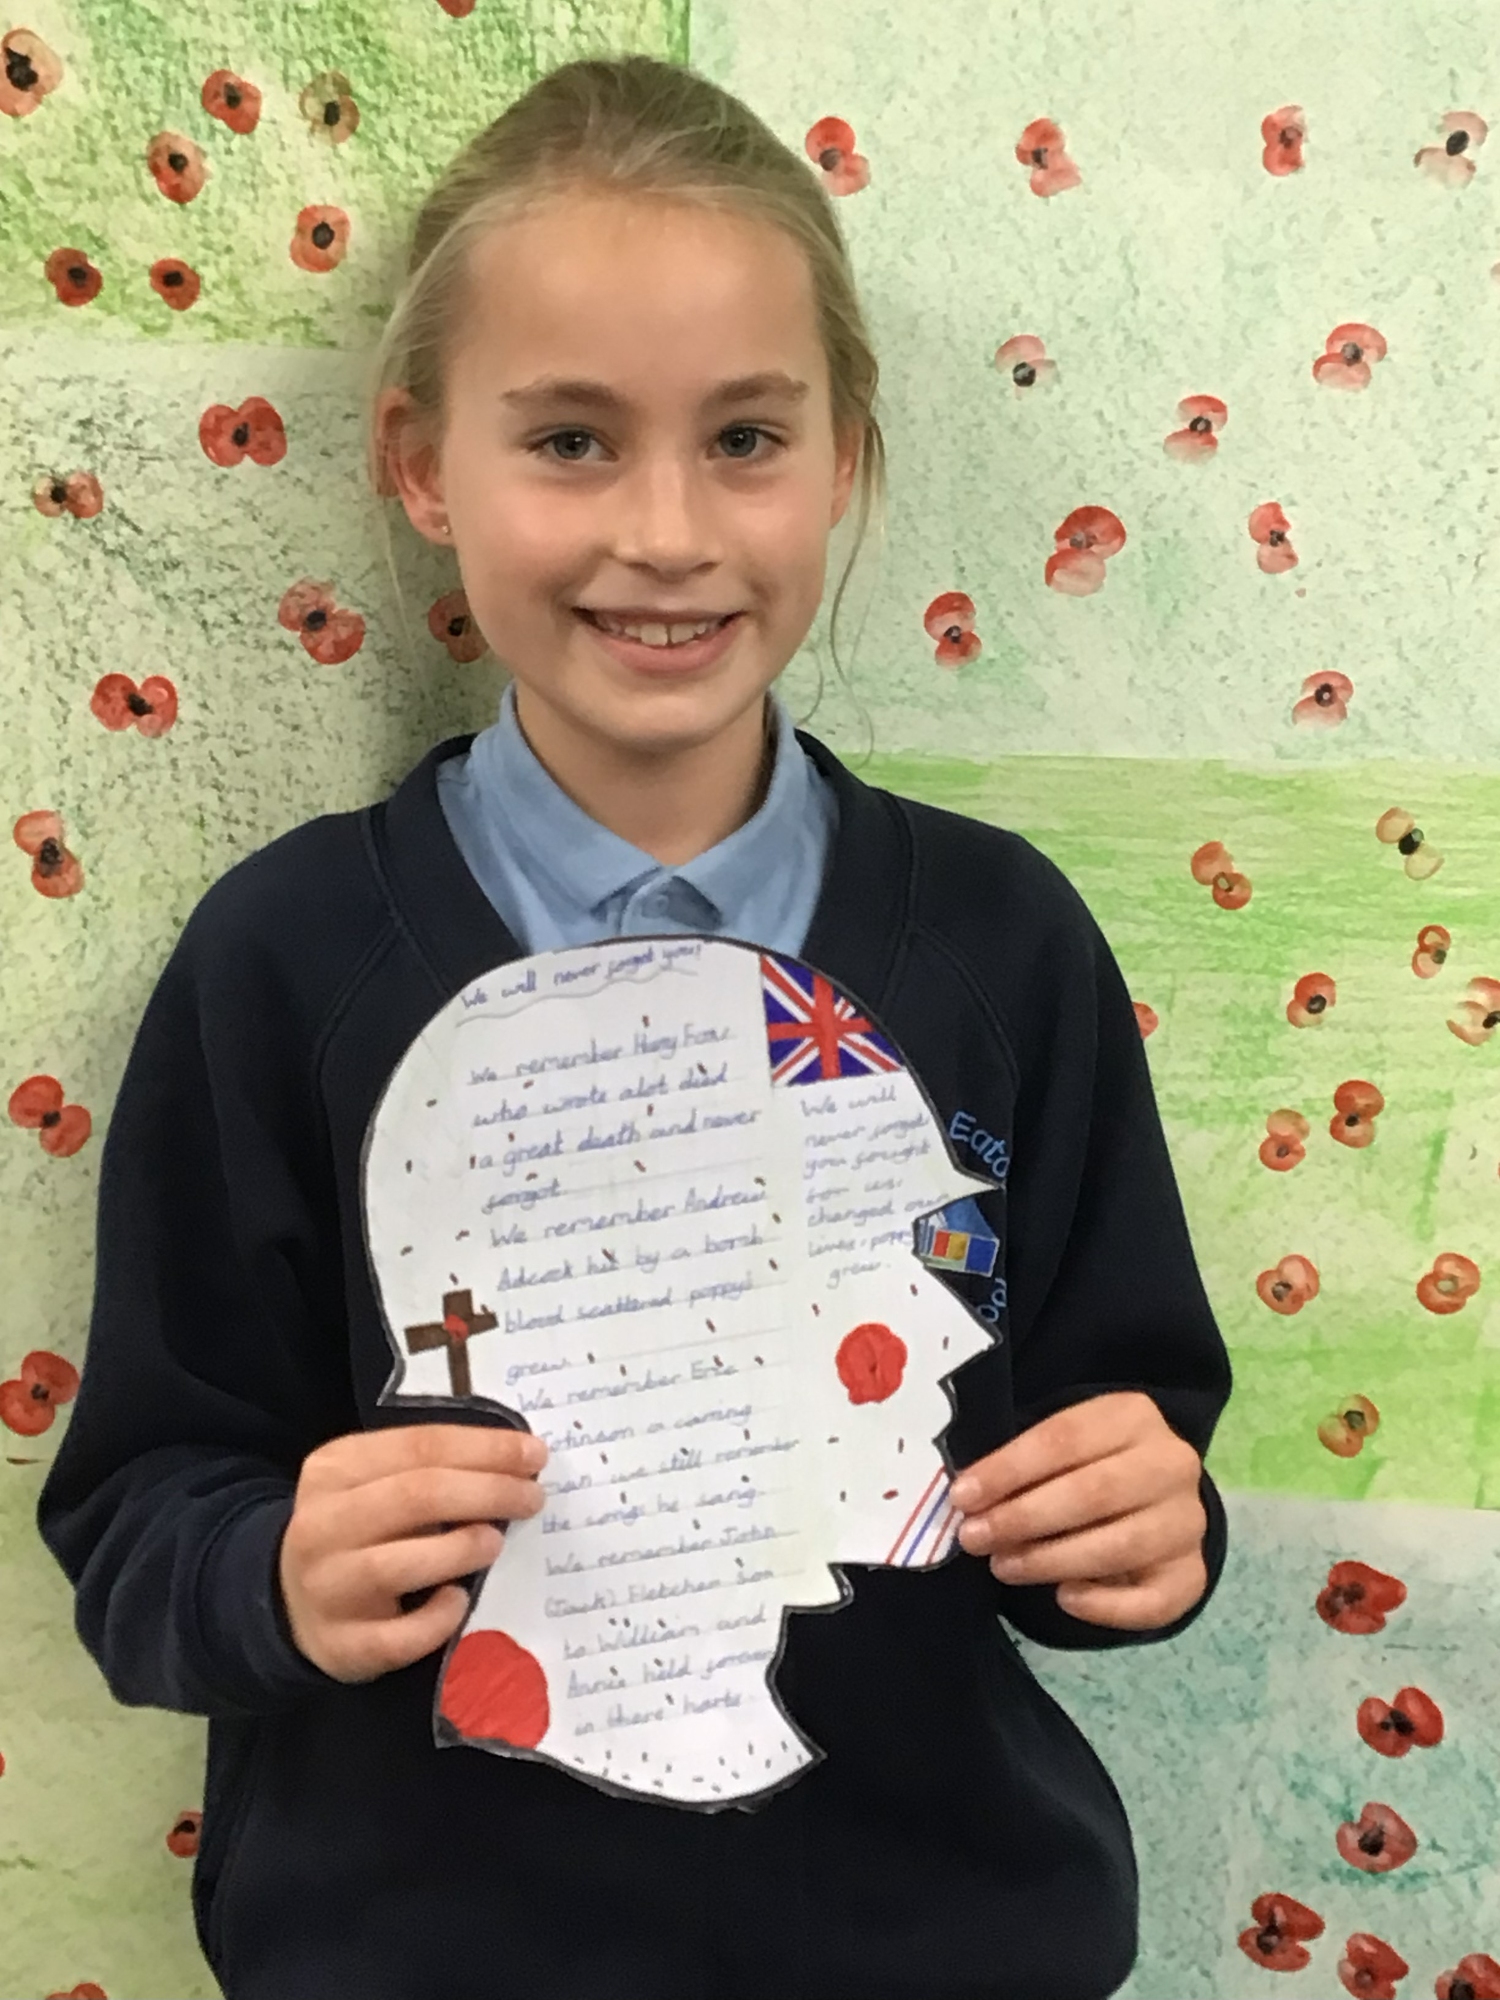 We will never forget you!
We remember Harry Fox
who wrote alot died
a great death and never
forgot.
We remember Andrew
Adcock hit by a bomb
blood scattered poppys
grew.
We remember Eric
Johnson a caring
man we still remember
the songs he sang.
We remember John
(Jack) Fletcher son
to William and
Annie held forever
in there harts.
We will
never forget
you fought
for us.
changed our
lives. poppy
grew.
Eato